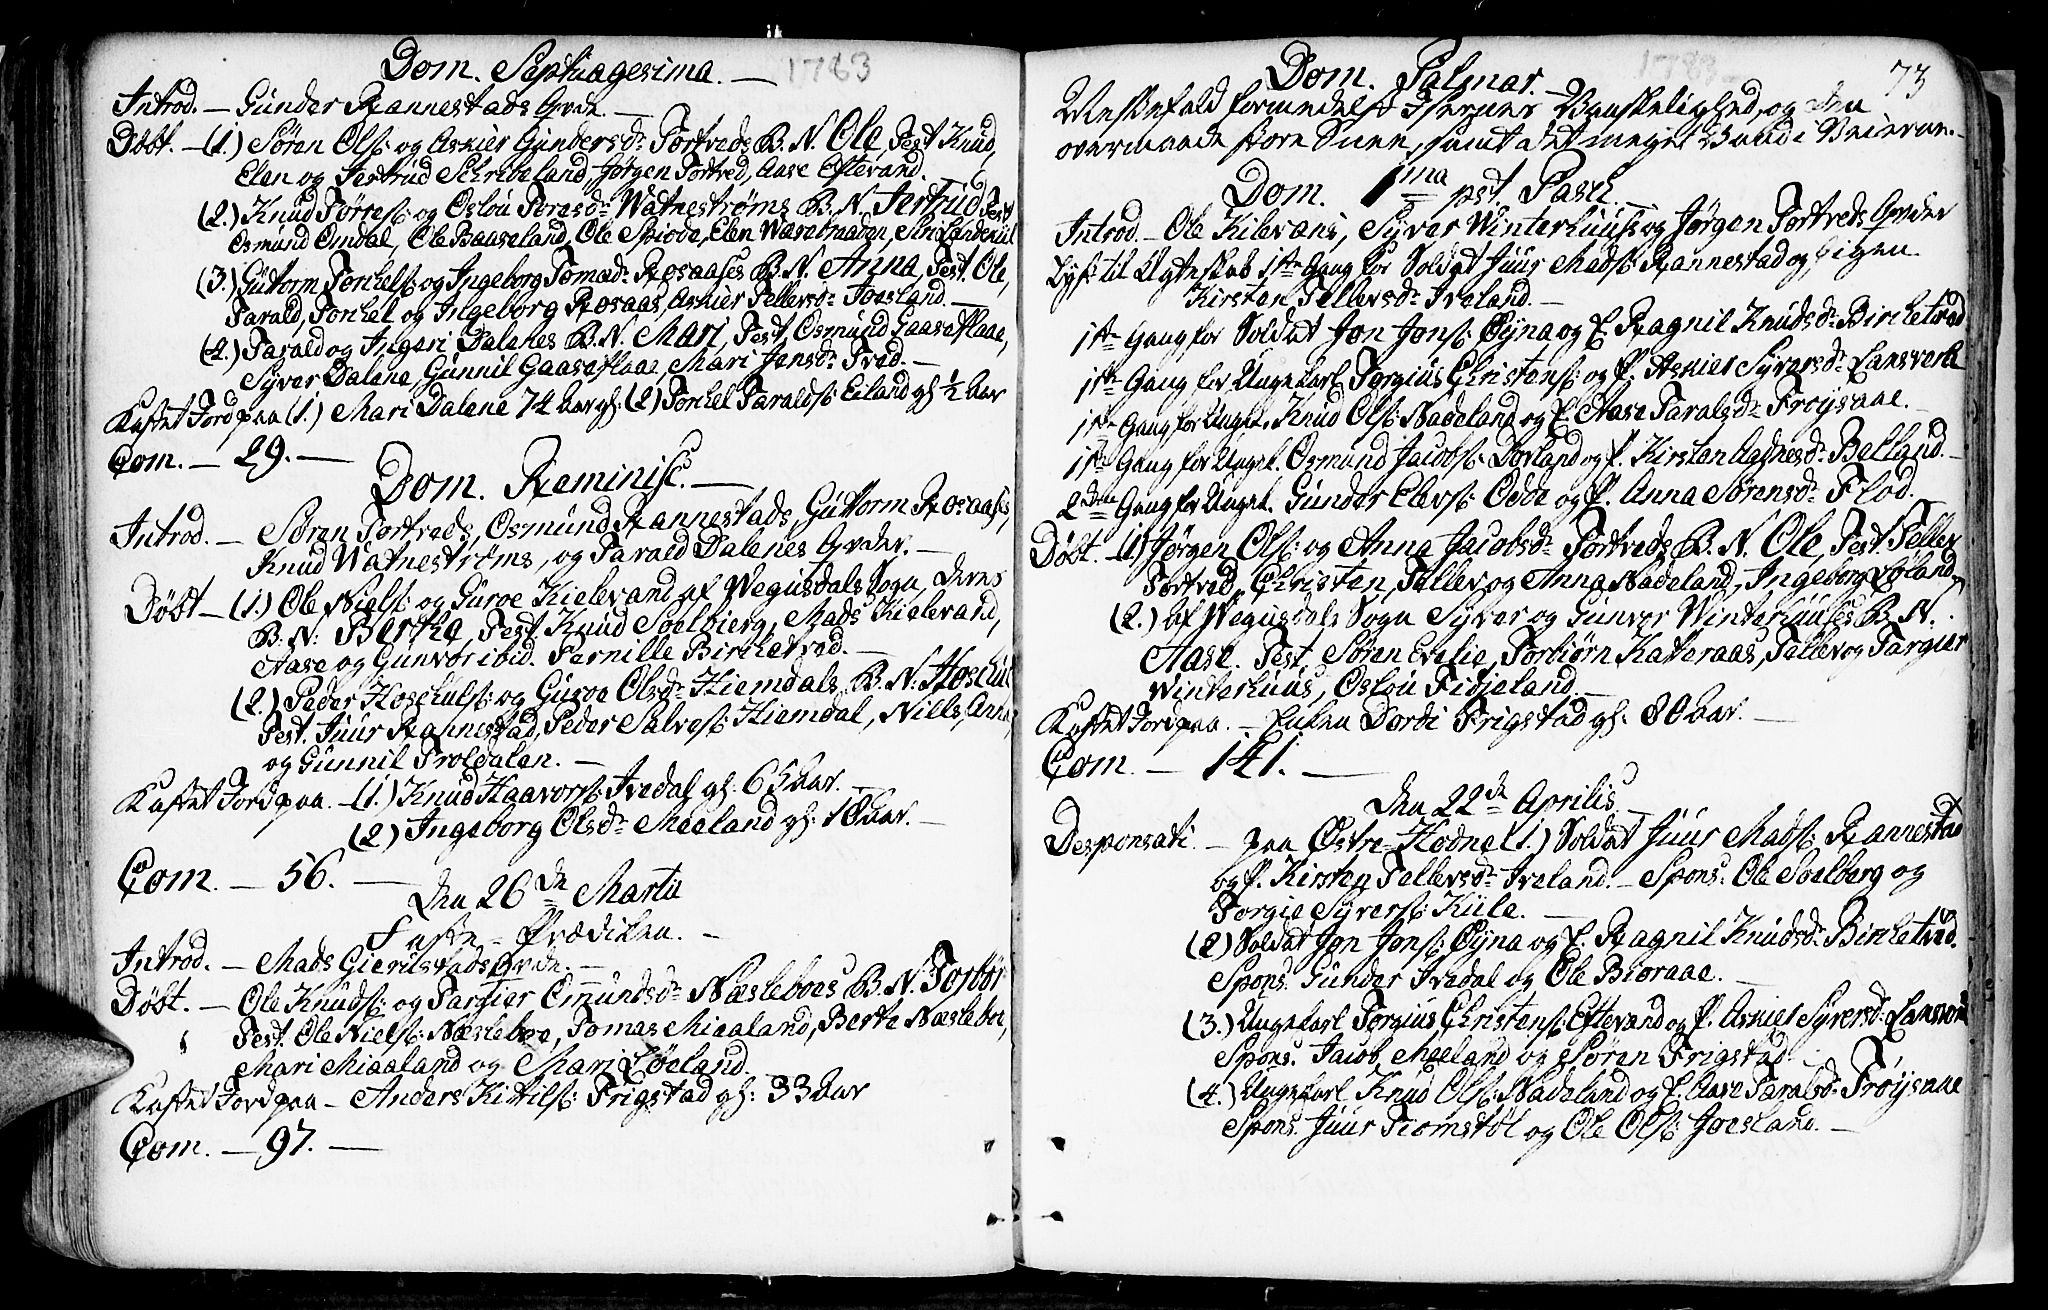 Dom. Septuagesima. — 1783
Introd. — Gunder Rannestads Qvde. —
Døbt. — (1.) Søren Ols: og Asnier Gundersd: Tortveds B. N. Ole, Test. Knud,
Elen og Jertrud Schrebeland, Jørgen Tortved, Aase Eftevand.
(2.) Knud Tørres: og Oslou Toresd: Watnestrøms B. N. Jertrud Test
Osmund Omdal, Ole Baaseland, Ole Spiode, Elen Wæsebraaden, Siri
(3.) Guttorm Torkels: og Ingeborg Tomæd: Rosaases B. N. Anna, Test. Ole,
Tarald, Torkel og Ingeborg Rosaas, Asnier Tellevsd: Joesland. —
(4.) Tarald og Ingeri Dalenes B. N. Mari, Test. Osmund Gaaseflaae,
Syver Dalene, Gunnil Gaaseflaae, Mari Jensd: Træd. —
Kastet Jord paa (1.) Mari Dalene 74 Aar gl: (2) Torkel Taralds: Eiland gl ½ Aar
Com. — 29. —
Dom. Reminisc. —
Introd. — Søren Tortveds, Osmund Rannestads, Guttorm Rosaases,
Knud Watnestrøms, og Tarald Dalenes Qvder. —
Døbt — (1.) Ole Niels: og Guroe Kielevand af Wegusdals Sogn, deres
B. N: Berthe, Test. Knud Soelbierg, Mads Kielevand,
Aase og Gunvor ibid. Pernille Birchetved. —
(2.) Peder Hoschuls: og Guroe Olsd: Hiemdals B. N: Hoschul
Test. Juur Rannestad, Peder Salves: Hiemdal, Niels, Anna,
og Gunnil Troldalen. —
Kastet Jord paa. — (1.) Knud Haavors: Ivedal gl: 65 Aar. —
(2) Ingeborg Olsd: Meeland gl: 18 Aar. —
Com. — 56. —
Den 26de Martii
Faste-Prædiken. —
Introd. — Mads Gierulstads Qvde. —
Døbt. — Ole Knuds: og Targier Omundsd: Næsleboes B. N. Torbør
Test. Ole Niels: Næsleboe, Tomas Miaaland, Berte Næsleboe,
Mari Miaaland og Mari Løeland.
Kastet Jord paa — Anders Kittils: Frigstad gl: 33 Aar
Com. — 97. —
Dom. Palmar. — 1783 73
Messefald formedelst Isernes Vanskelighed, og den
overmaade store Snee, samt det meget Vand i Veiene. —
Dom. 1ma pst. Pasch. —
Introd — Ole Kilevans, Syver Winterhuus og Jørgen Tortveds Qvder
Lyst til Ægteskab 1ste Gang for Soldat Juur Mads: Rannestad og Pigen
Kirsten Tellevsd: Iveland. —
1ste Gang for Soldat Jon Jons: Øyna og P. Ragnil Knudsd: Birchetved
1ste Gang for Ungekarl Torgius Christens: og P. Asnier Syversd: Lansverk
1ste Gang for Ungek. Knud Ols: Nadeland og P. Aase Taralsd: Frøysaae. —
1ste Gang for Ungek. Osmund Jacobs: Dovland og P. Kirsten Aasnesd: Belland. —
2den Gang for Ungek. Gunder Elevs: Odde og P. Anna Sørensd: Flod.
Døbt. — (1) Jørgen Ols: og Anne Jacobsd: Tortveds B. N. Ole, Test. Tellev
Tortved, Christen, Tellev og Anna Nadeland, Ingeborg Løland
(2.) af Wegusdals Sogn Syver og Gunvor Winterhuuses B. N.
Aase. Test. Søren Evelie, Torbiørn Katteraas, Tellev og Targier
Winterhuus, Oslou Fidjeland. —
Kastet Jord paa. — Enken Dordi Frigstad gl: 80 Aar. —
Com. — 141. —
Den 22de Aprilis. —
Desponsati. — paa Østre-Hodne (1.) Soldat Juur Mads: Rannestad
og P. Kirsten Tellevsd: Iveland. — Spons: Ole Soelberg og
Torgie Syvers: Kiile. —
(2) Soldat Jon Jons: Øyna og P. Ragnil Knudsd: Birchetved.
Spons. Gunder Ivedal og Ole Bioraae. —
(3.) Ungekarl Torgius Christens: Eftevand og P. Asnier Syversd: Lansverk
Spons. Jacob Meeland og Søren Frigstad.
(4.) Ungekarl Knud Ols: Nadeland og P. Aase Taralsd: Frøysaae
Spons. Juur Fiomstøl og Ole Ols: Joesland. —